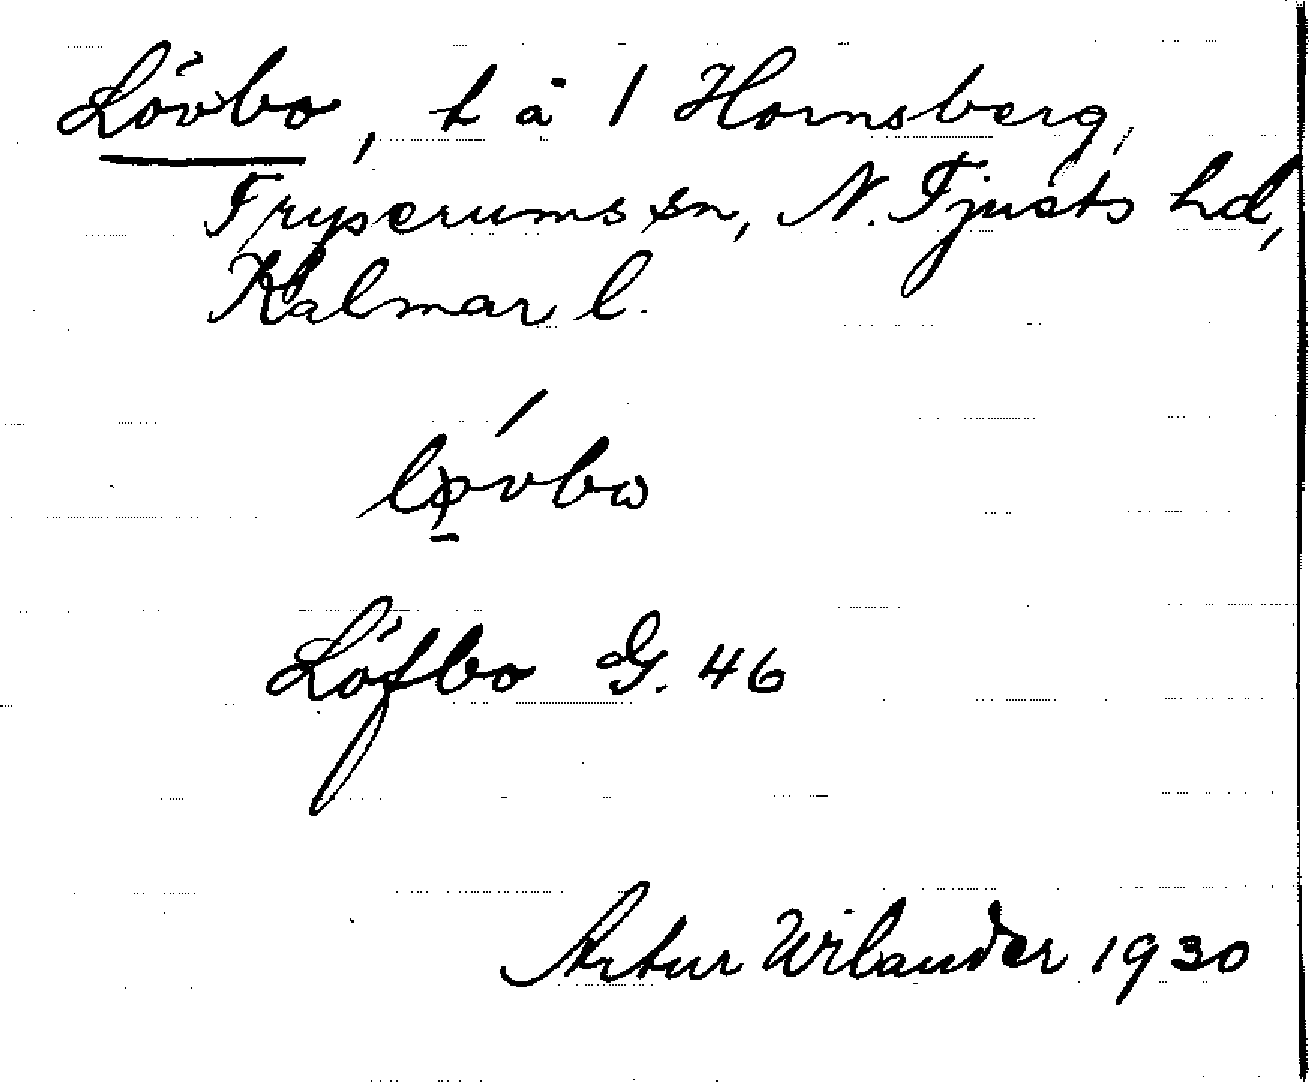 Lövbo, t å 1 Hornsberg,
Fryserums sn, N. Tjusts hd,
Kalmar l.
Löfbo G. 46
Artur Wilander 1930